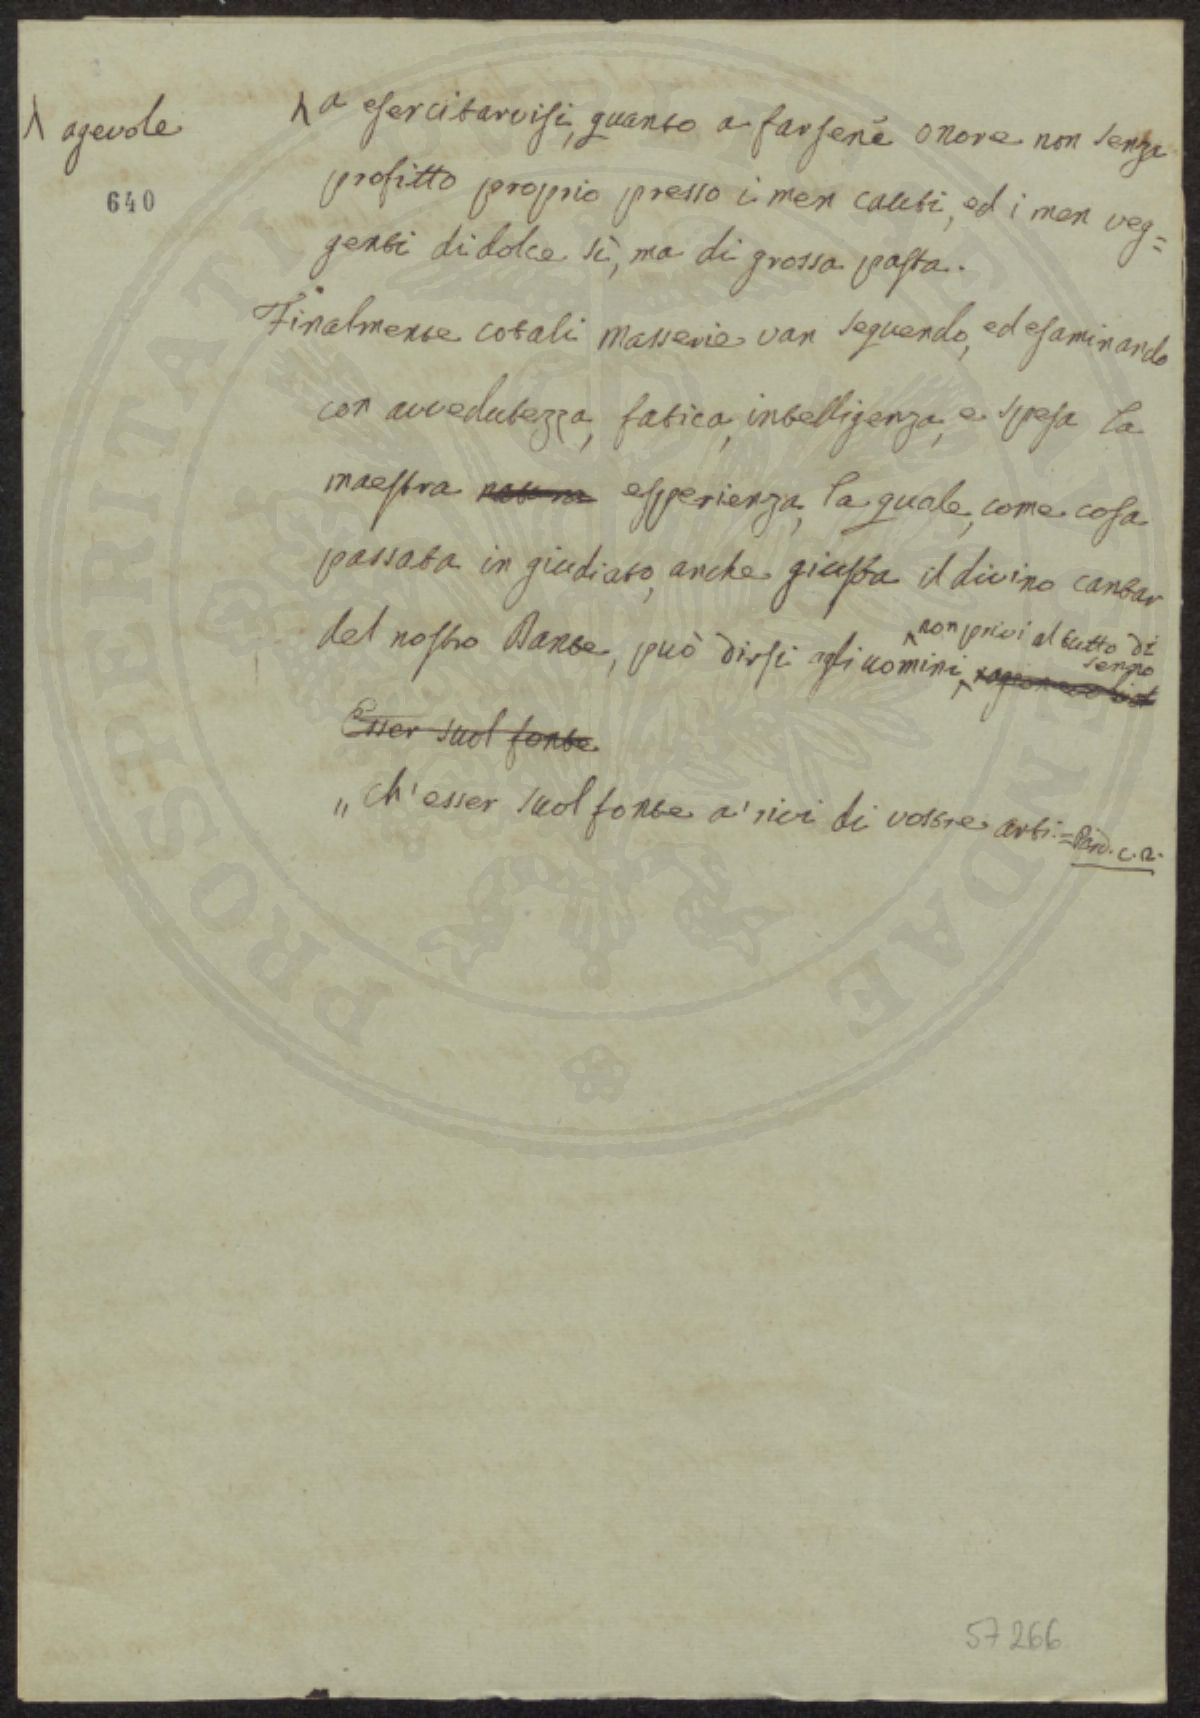 ⋏ agevole
640
⋏ a esercitarvisi, quanto a farsene onore non senza
profitto proprio presso i men cauti, ed i men veg=
genti di dolce sì, ma di grossa pasta.
Finalmente cotali masserie van seguendo, ed esaminando
con avvedutezza, fatica, intelligenza, e spesa la
maestra natura esperienza, la quale, come cosa
passata in giudiato, anche giusta il divino cantar
non privi al tutto di
senno
del nostro Dante, può dirsi agli uomini,
Esser suol fonte
„ Ch' esser suol fonte a' rivi di vostre arti. = Par. c. 2.
PROSPERITATI PUBLICAE AUGENDAE
57266